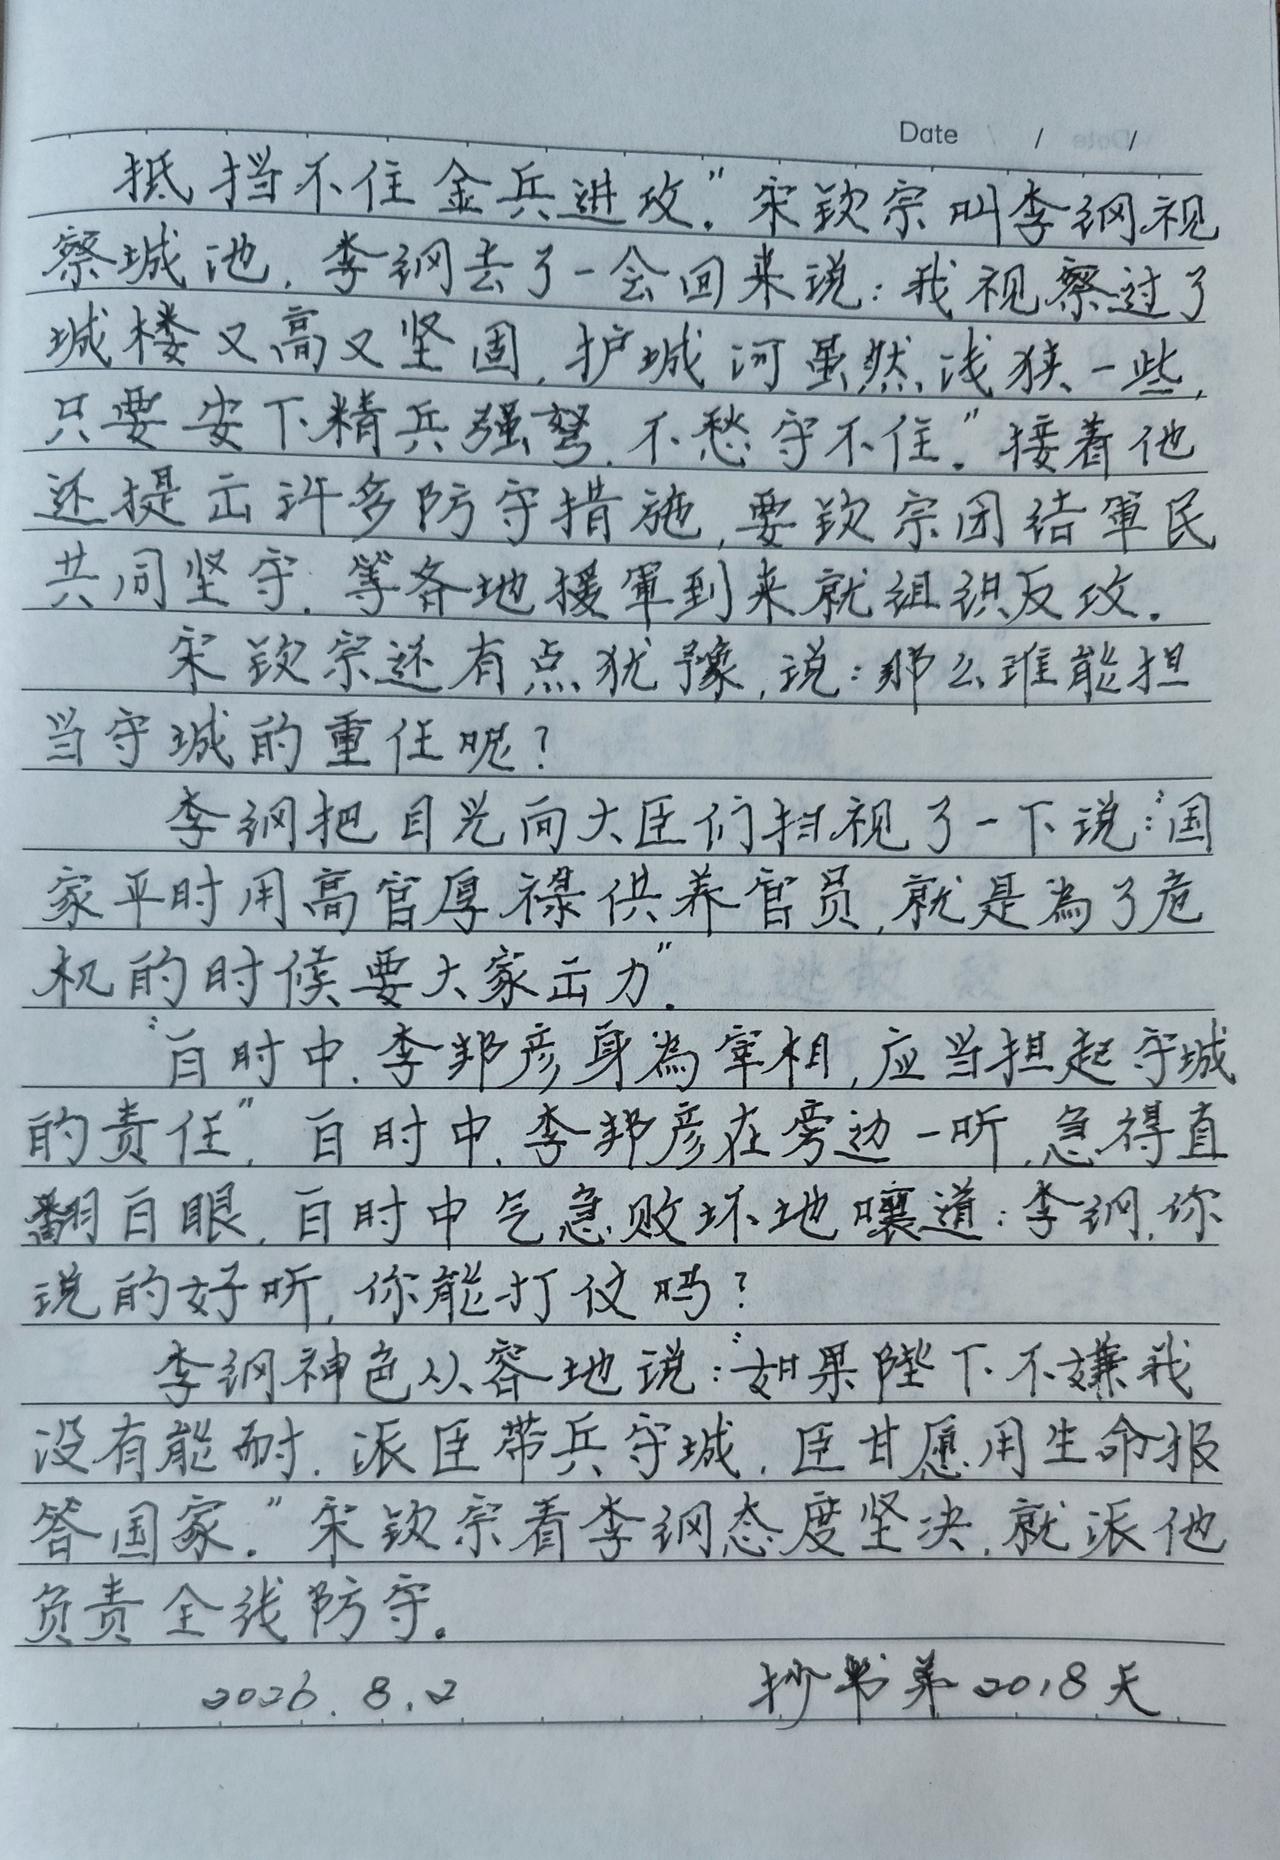 Date / /
抵挡不住金兵进攻。”宋钦宗叫李纲视
察城池，李纲去了一会回来说：我视察过了
城楼又高又坚固，护城河虽然浅狭一些，
只要安下精兵强弩，不愁守不住。”接着他
还提出许多防守措施，要钦宗团结軍民
共同坚守，等各地援軍到来就组织反攻。
宋钦宗还有点犹豫，说：那么谁能担
当守城的重任呢？
李纲把目光向大臣们扫视了一下说：“国
家平时用高官厚禄供养官员，就是為了危
机的时候要大家出力”。
“白时中、李邦彦身為宰相，应当担起守城
的责任”，白时中、李邦彦在旁边一听，急得直
翻白眼，白时中气急败坏地嚷道：李纲，你
说的好听，你能打仗吗？
李纲神色从容地说：“如果陛下不嫌我
没有能耐，派臣带兵守城，臣甘愿用生命报
答国家。”宋钦宗看李纲态度坚决，就派他
负责全线防守。
2026.8.2 抄书第2018天